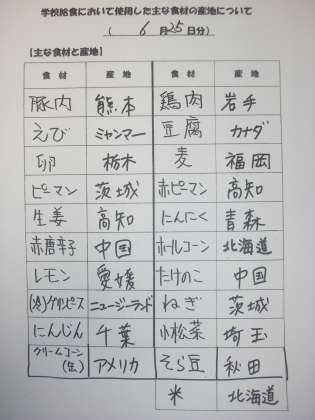 学校給食において使用した主な食材の産地について
( 6月25日分)
【主な食材と産地】
食材 産地 食材 産地
豚肉 熊本 鶏肉 岩手
えび ミャンマー 豆腐 カナダ
卵 栃木 麦 福岡
ピーマン 茨城 赤ピーマン 高知
生姜 高知 にんにく 青森
赤唐辛子 中国 ホールコーン 北海道
レモン 愛媛 たけのこ 中国
(冷)グリンピース ニュージーランド ねぎ 茨城
にんじん 千葉 小松菜 埼玉
クリームコーン(缶) アメリカ そら豆 秋田
米 北海道